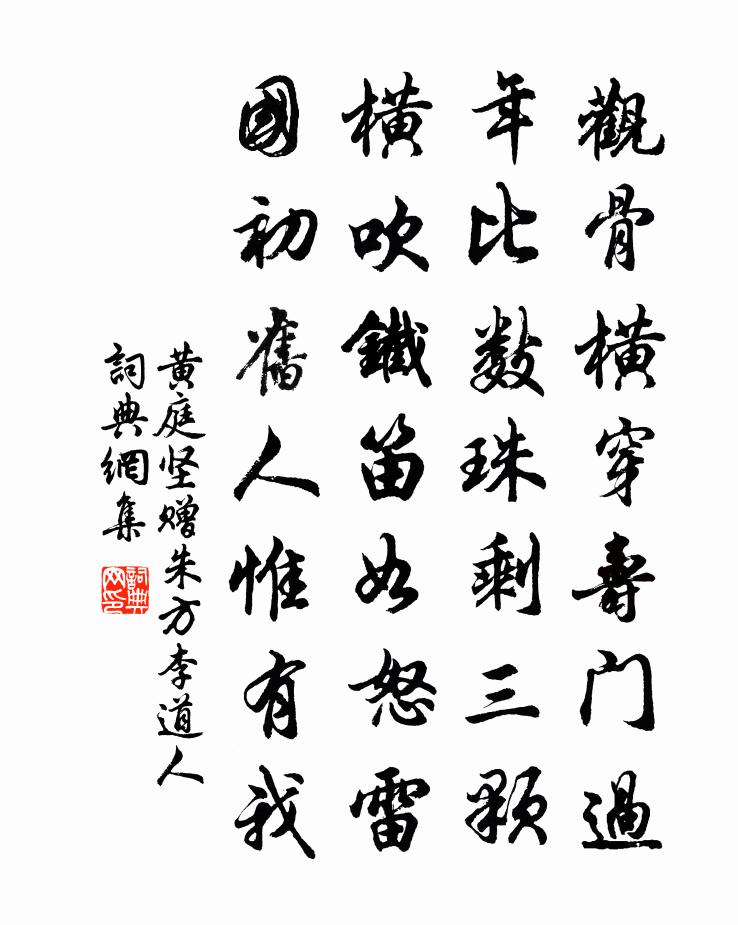 觀骨橫穿壽門過
年比數珠剩三顆
橫吹鐵笛如怒雷
國初舊人惟有我
黄庭坚赠朱方李道人
詞典網集
詞典網印